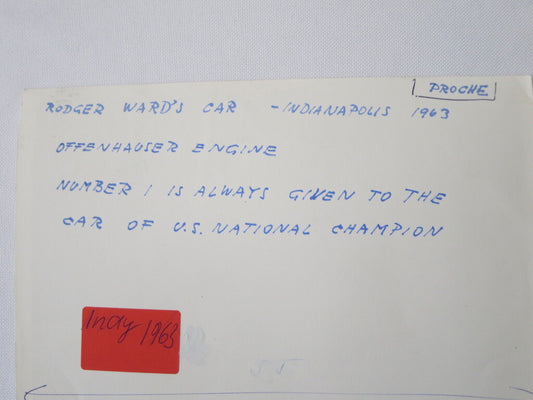 PROCHE
RODGER WARD'S CAR - INDIANAPOLIS 1963
OFFENHAUSER ENGINE
NUMBER 1 IS ALWAYS GIVEN TO THE
CAR OF U.S. NATIONAL CHAMPION
Indy 1963